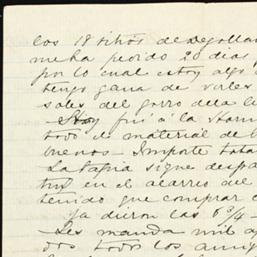 los 18 sitios de Degolla
me ha pedido 20 dias
por lo cual estoy algo
tengo gana de verles
soles del gorro de la
Hoy fuí á la
todo el material de
buenos - Importe tota
La tapia sigue despa
en el acarreo del
tenido que comprar
ya dieron las 6 3/4 -
Les manda mil
dos todos los amig